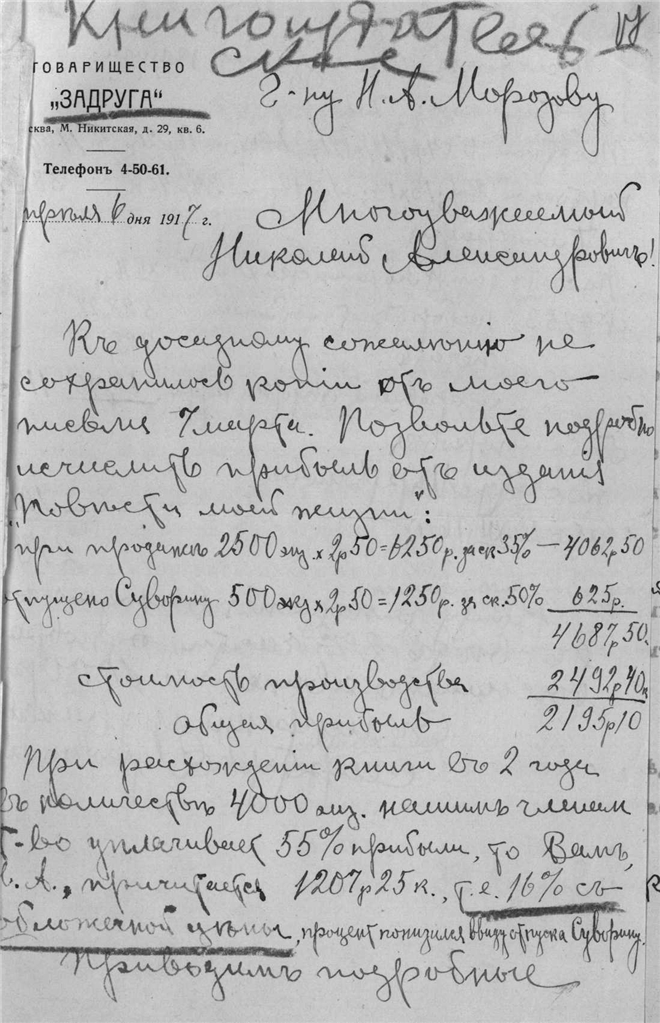 Книгоиздательс
ское
VII
ТОВАРИЩЕСТВО
„ЗАДРУГА“
сква, М. Никитская, д. 29, кв. 6.
Телефонъ 4-50-61.
преля 6 дня 1917 г.
Г-ну Н. А. Морозову
Многоуважаемый
Николай Александровичъ!
Къ досадному сожалѣнію не
сохранилось копіи отъ моего
письма 7 марта. Позвольте подробно
исчислить прибыль отъ изданія
„Повѣсти моей жизни“:
при продажѣ 2500 экз. x 2р50=6250р. за ск 35% — 4062р50
отпущено Суворину 500 экз x 2р50=1250р. за ск. 50% 625р.
4687р50.
стоимость производства 2492р40к
общая прибыль 2195р10
При расхожденіи книги въ 2 года
въ количествѣ 4000 экз. нашимъ членам
Т-во уплачивает 55% прибыли, то Вамъ,
Н. А., причитается 1207р25к., т.е. 16% съ
обложечной цѣны, процент понизился ввиду отпуска Суворину.
Приводимъ подробные